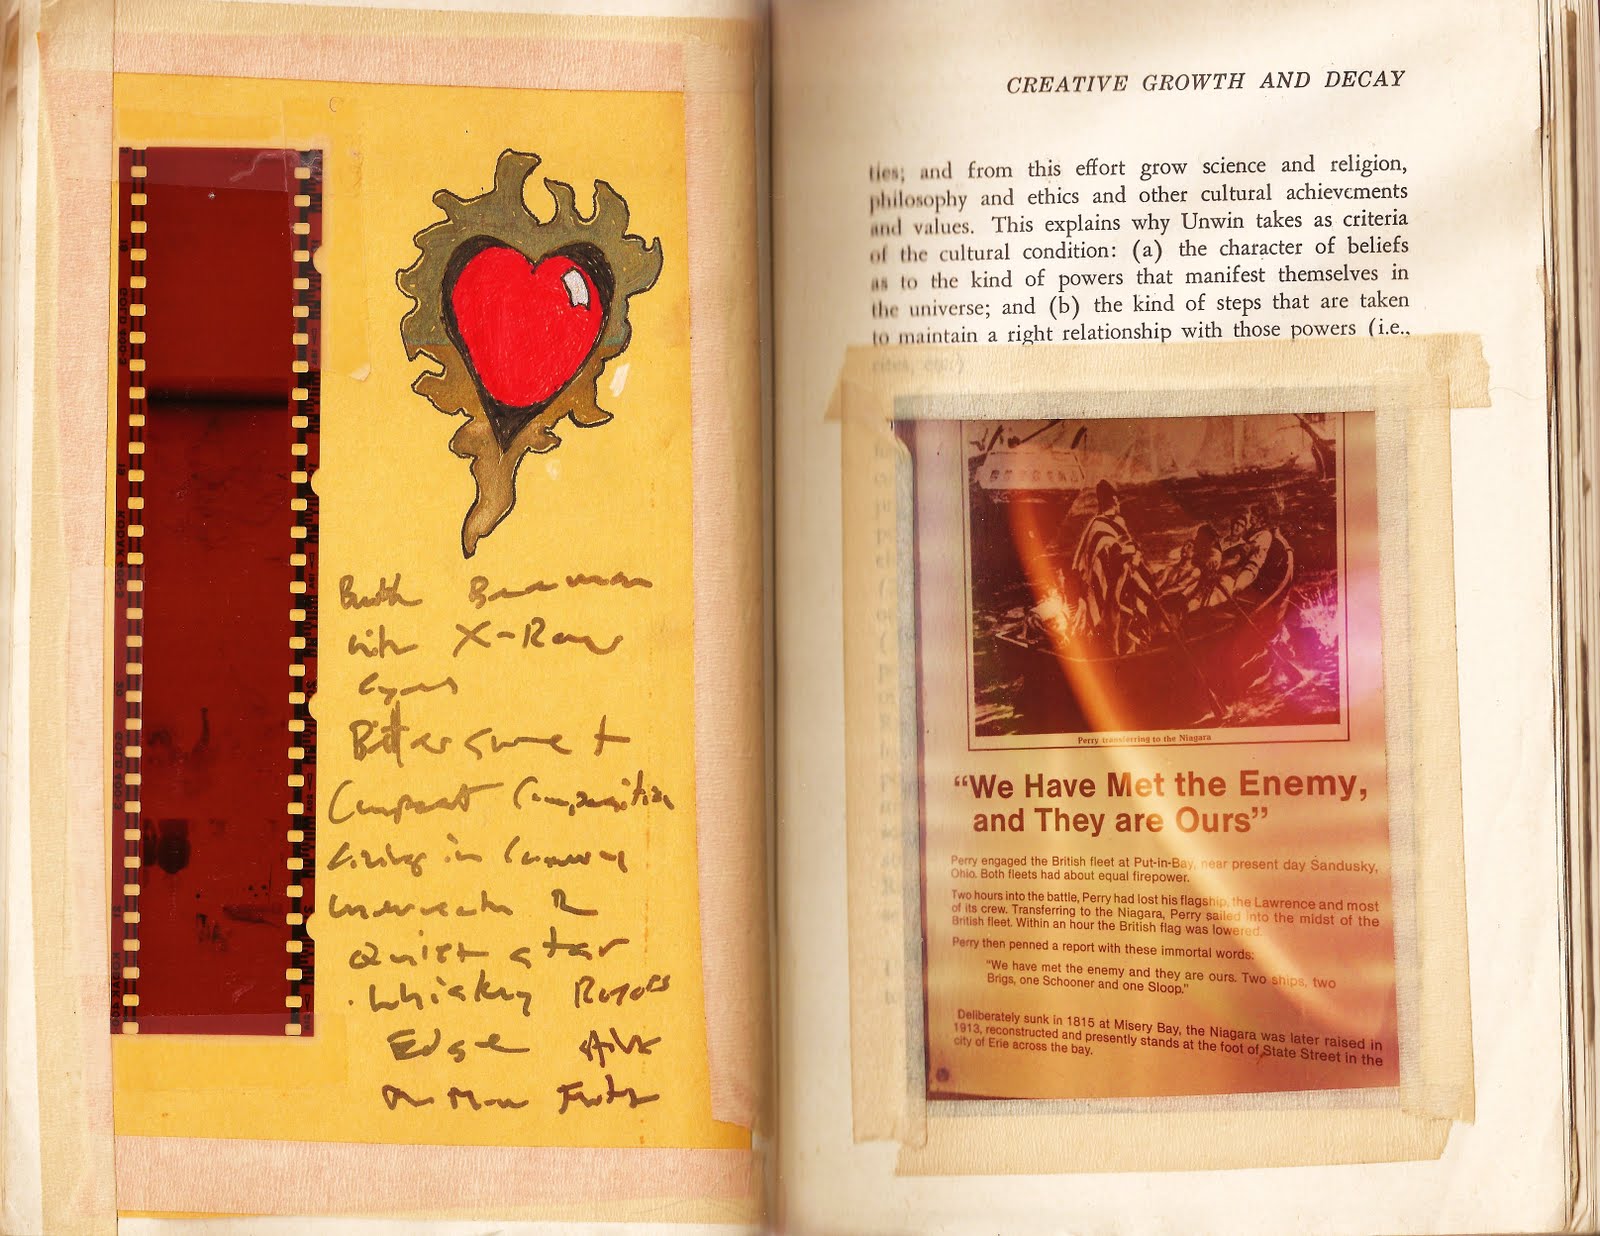 with X-Ray
eyes
Bittersweet
Compost Composition
living in
Underneath
Quiet star
Whiskey Roses
Edge
CREATIVE GROWTH AND DECAY
ties; and from this effort grow science and religion,
philosophy and ethics and other cultural achievements
and values. This explains why Unwin takes as criteria
of the cultural condition: (a) the character of beliefs
as to the kind of powers that manifest themselves in
the universe; and (b) the kind of steps that are taken
to maintain a right relationship with those powers (i.e.,
rites, etc.)
Perry transferring to the Niagara
“We Have Met the Enemy,
and They are Ours”
Perry engaged the British fleet at Put-in-Bay, near present day Sandusky,
Ohio. Both fleets had about equal firepower.
Two hours into the battle, Perry had lost his flagship, the Lawrence and most
of its crew. Transferring to the Niagara, Perry sailed into the midst of the
British fleet. Within an hour the British flag was lowered.
Perry then penned a report with these immortal words:
“We have met the enemy and they are ours. Two ships, two
Brigs, one Schooner and one Sloop.”
Deliberately sunk in 1815 at Misery Bay, the Niagara was later raised in
1913, reconstructed and presently stands at the foot of State Street in the
city of Erie across the bay.